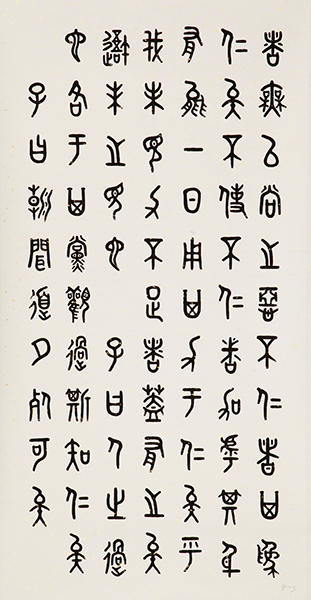 者無以尚之惡不仁者其為
仁矣不使不仁者加乎其身
有能一日用其力于仁矣乎
我未見力不足者蓋有之矣
我未之見也 子曰人之過
也各于其黨觀過斯知仁矣
子曰朝聞道夕死可矣